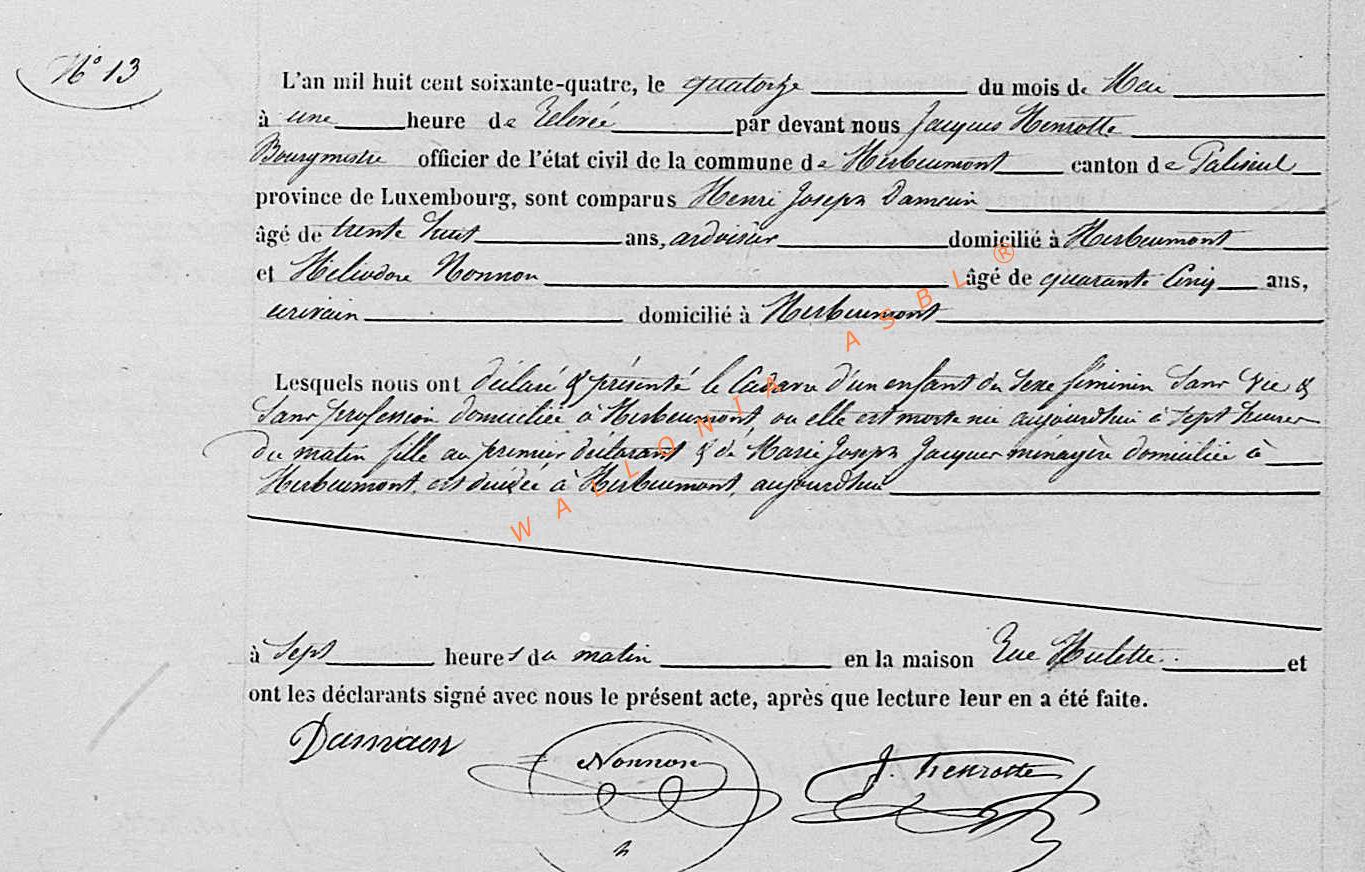 N° 13
L'an mil huit cent soixante-quatre, le quatorze du mois de Mai
à une heure de Relevée par devant nous Jacques Henrotte
Bourgmestre officier de l'état civil de la commune de Herbeumont canton de Paliseul
province de Luxembourg, sont comparus Henri Joseph Damain
âgé de trente huit ans, ardoisier domicilié à Herbeumont
et Héliodore Nonnon âgé de quarante Cinq ans,
écrivain domicilié à Herbeumont
Lesquels nous ont déclaré & présenté le Cadavre d'un enfant du sexe féminin Sans Vie &
Sans profession domiciliée à Herbeumont, ou elle est morte née aujourd'hui à sept heures
du matin fille au premier déclarant & de Marie Joseph Jacques ménagère domiciliée à
Herbeumont, est décédée à Herbeumont, aujourd'hui
à Sept heures du matin en la maison Rue Hulette et
ont les déclarants signé avec nous le présent acte, après que lecture leur en a été faite.
Damain Nonnon J. henrotte
WALLONIA ASBL ®